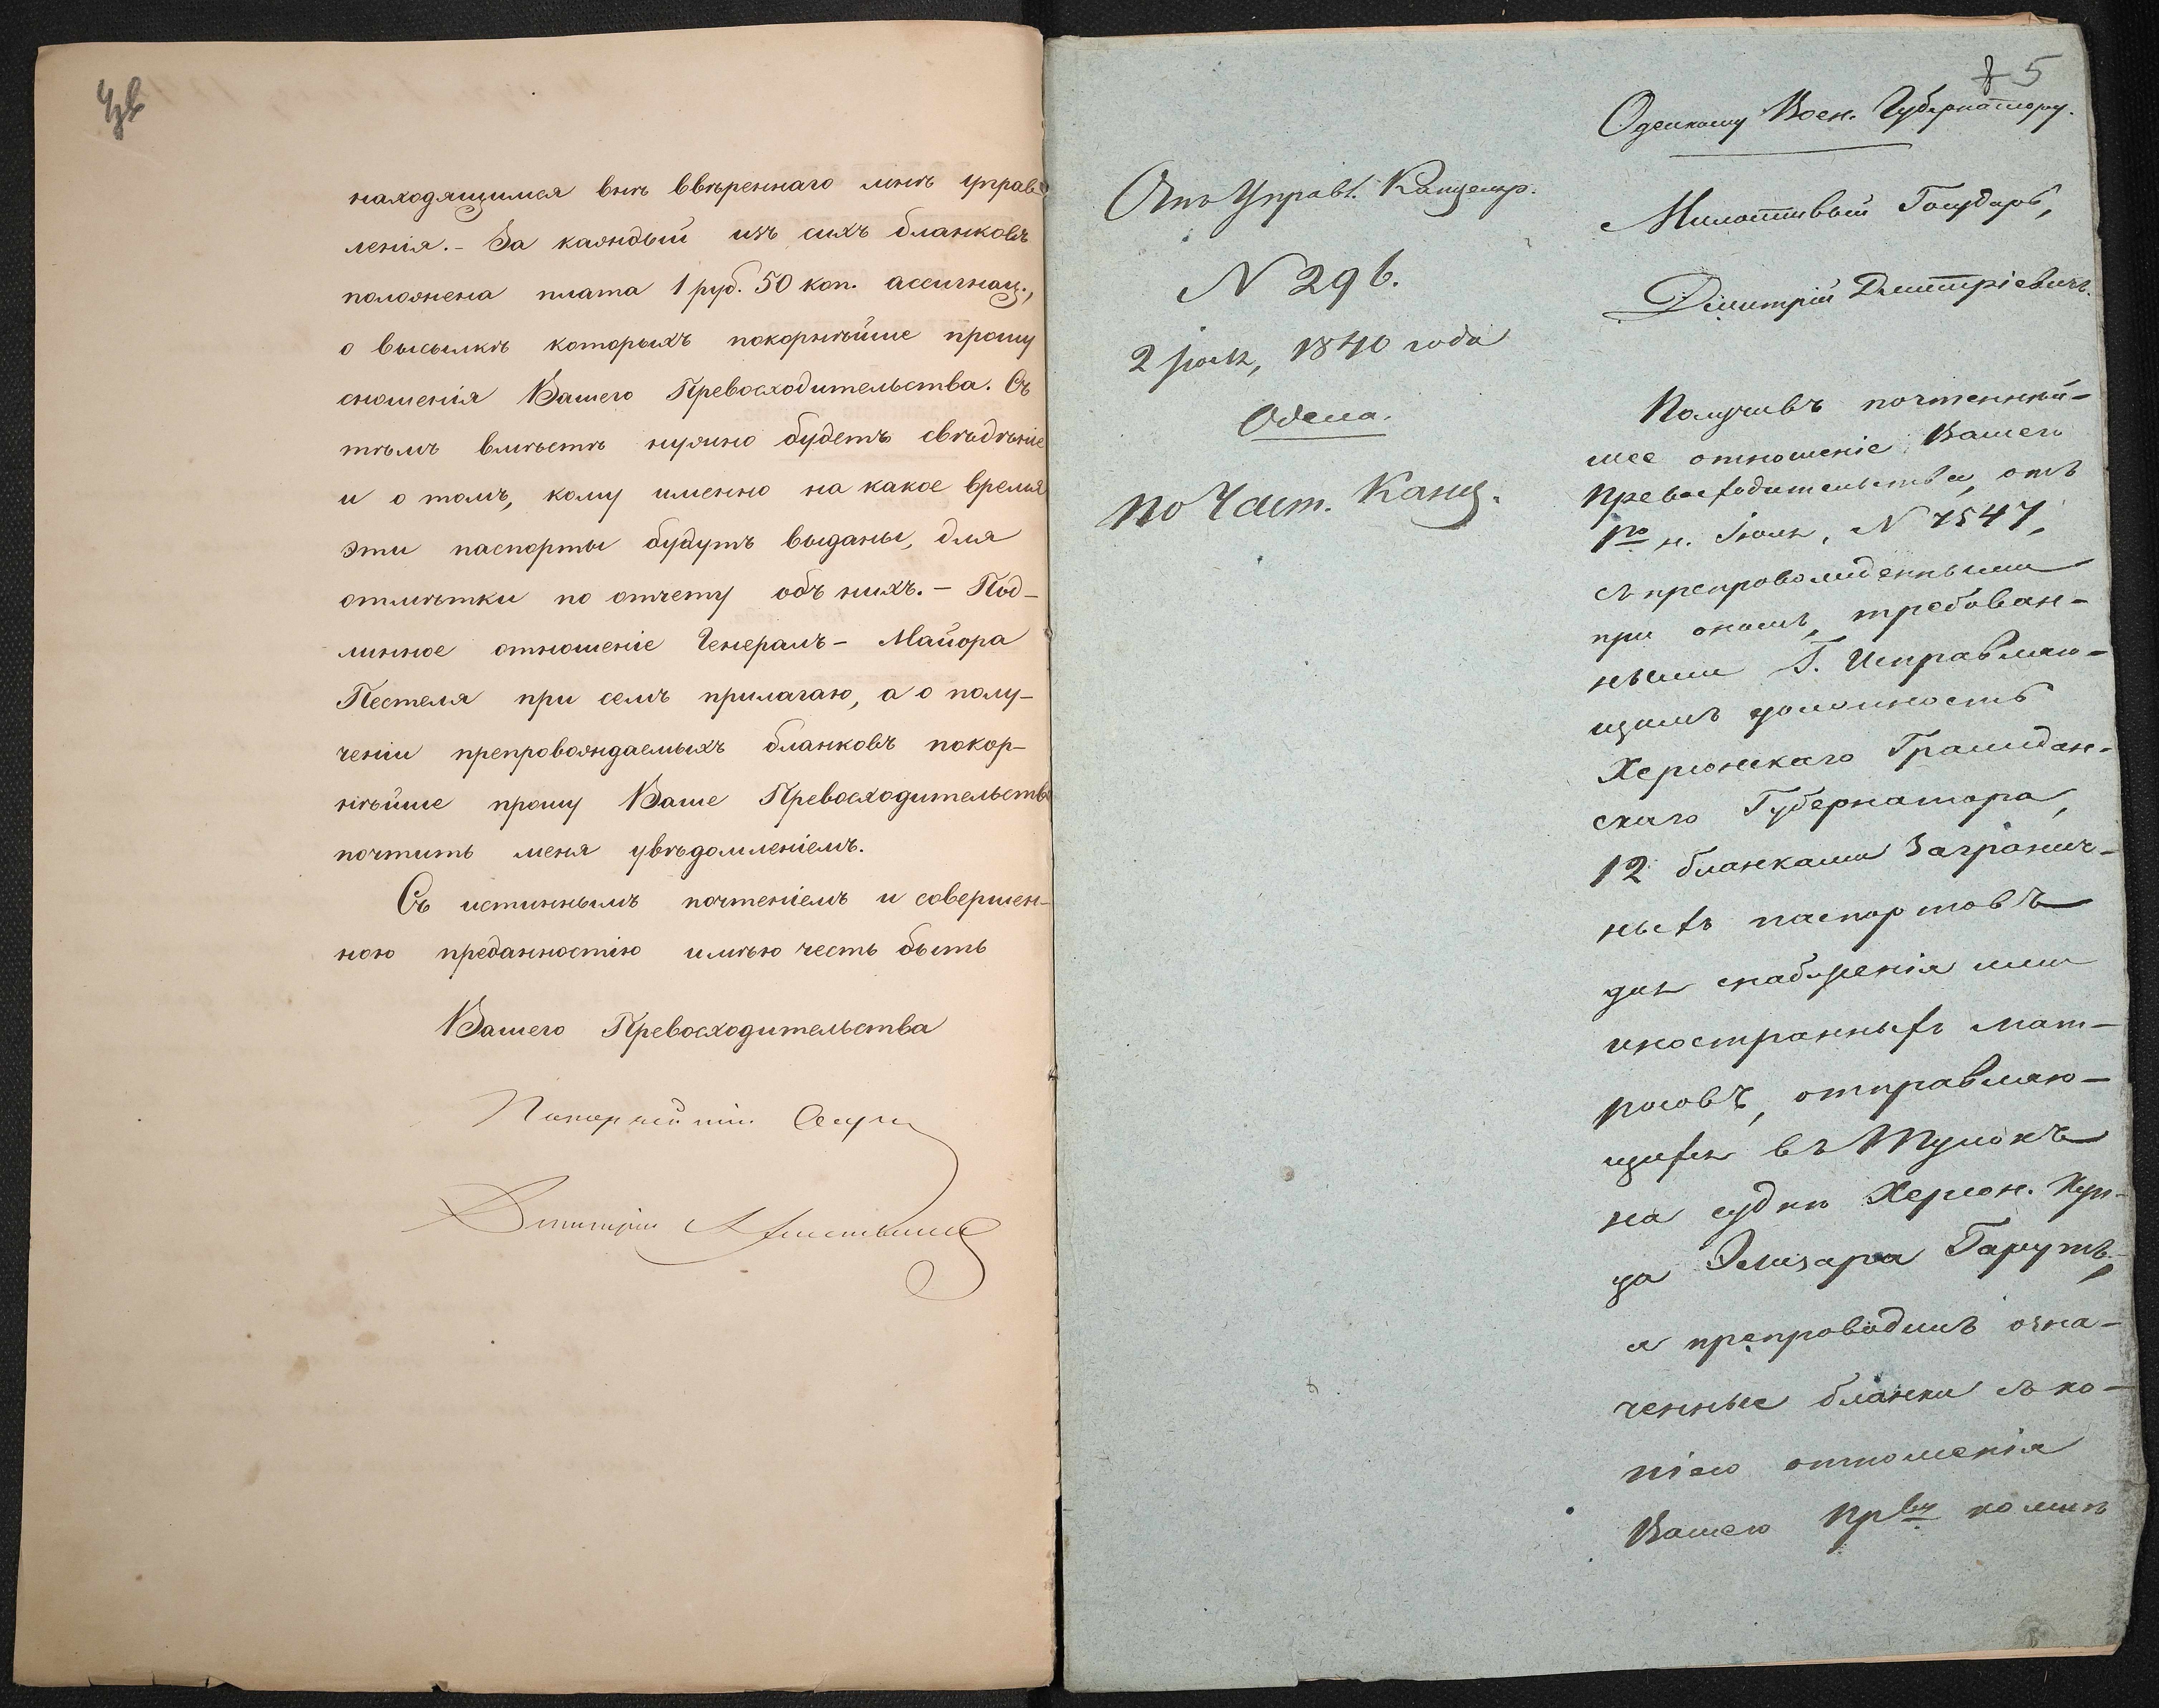 находящимся внѣ ввѣреннаго мнѣ управ
ленія. - За каждый изъ сихъ бланковъ
положена плата 1 руб. 50 коп. ассигнац.,
о высылкѣ которыхъ покорнѣйше прошу
сношенія Вашего Превосходительства. Съ
тѣмъ вмѣстѣ нужно будетъ свѣдѣніе
и о томъ, кому именно на какое время
эти паспорты будутъ выданы, для
отмѣтки по отчету объ нихъ. - Под-
линное отношеніе Генералъ-Маіора
Пестеля при семъ прилагаю, а о полу-
ченіи препровождаемыхъ бланковъ покор-
нѣйше прошу Ваше Превосходительство
почтить меня увѣдомленіемъ.
Съ истиннымъ почтеніемъ и совершен-
ною преданностію имѣю честь быть
Вашего Превосходительства
Покорнѣйшій Слуга
Дмитрій Ахлестышевъ
5
Одесскому Воен. Губернатору.
Отъ Управл. Канцеляр.
N 296.
2 Іюля, 1840 года
Одесса.
по Част. Канц.
Милостивый Государь,
Дмитрій Дмитріевичъ.
Получивъ почтеннѣй-
шее отношеніе Вашего
Превосходительства, отъ
1го н. Іюля, N 7547,
съ препровожденными
при ономъ, требован-
ными Г. Исправляю-
щимъ должность
Херсонскаго Граждан-
скаго Губернатора,
12 бланками Загранич-
ныхъ паспортовъ
для снабженія ими
иностранныхъ мат-
росовъ, отправляю-
щихся въ
на суднѣ Херсон. Куп-
ца Элизара Гарутъ,
я препроводилъ озна-
ченные бланки съ ко-
піею отношенія
Вашего Прва къ